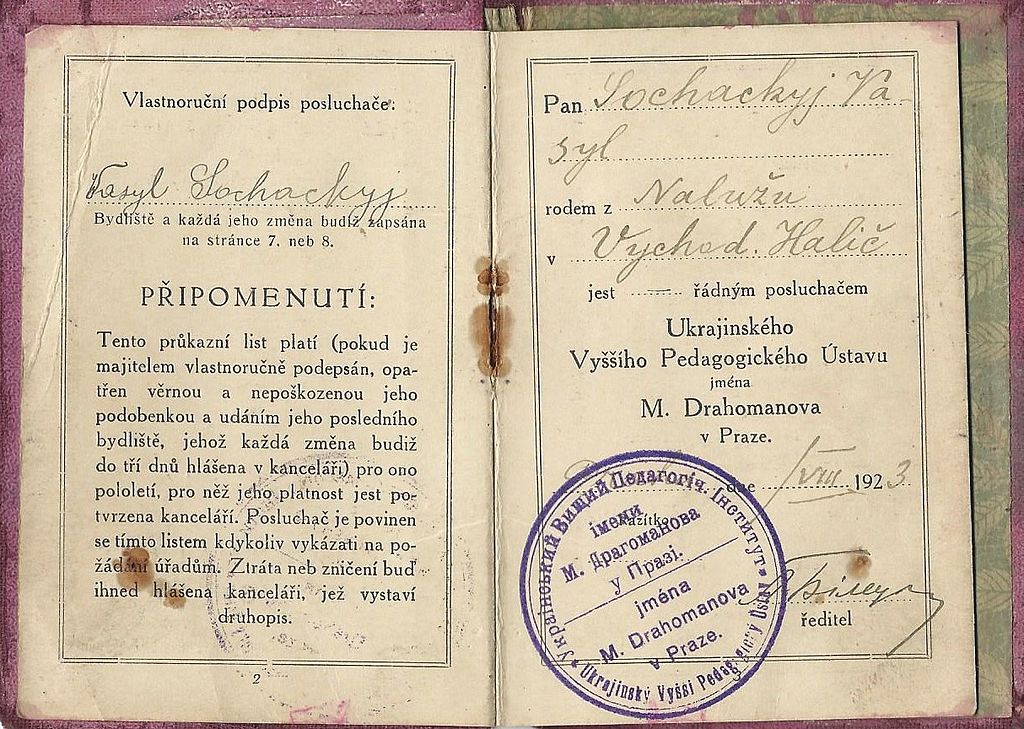 Vlastnoruční podpis posluchače:
Vasyl Sochackyj
Bydliště a každá jeho změna budiž zapsána
na stránce 7. neb 8.
PŘIPOMENUTÍ:
Tento průkazní list platí (pokud je
majitelem vlastnoručně podepsán, opa-
třen věrnou a nepoškozenou jeho
podobenkou a udáním jeho posledního
bydliště, jehož každá změna budiž
do tří dnů hlášena v kanceláři) pro ono
pololetí, pro něž jeho platnost jest po-
tvrzena kanceláří. Posluchač je povinen
se tímto listem kdykoliv vykázati na po-
žádání úřadům. Ztráta neb zničení buď
ihned hlášena kanceláři, jež vystaví
druhopis.
2
Pan Sochackyj Va-
syl
rodem z Nalužu
v Vychod. Halič
jest řádným posluchačem
Ukrajinského
Vyššího Pedagogického Ústavu
jména
M. Drahomanova
v Praze.
dne 1/VIII 1923
ředitel
Український Вищий Педагогіч. Інститут
імени
М. Драгоманова
у Празі.
jména
M. Drahomanova
v Praze.
Ukrajinský Vyšší Pedagogický Ústav
3